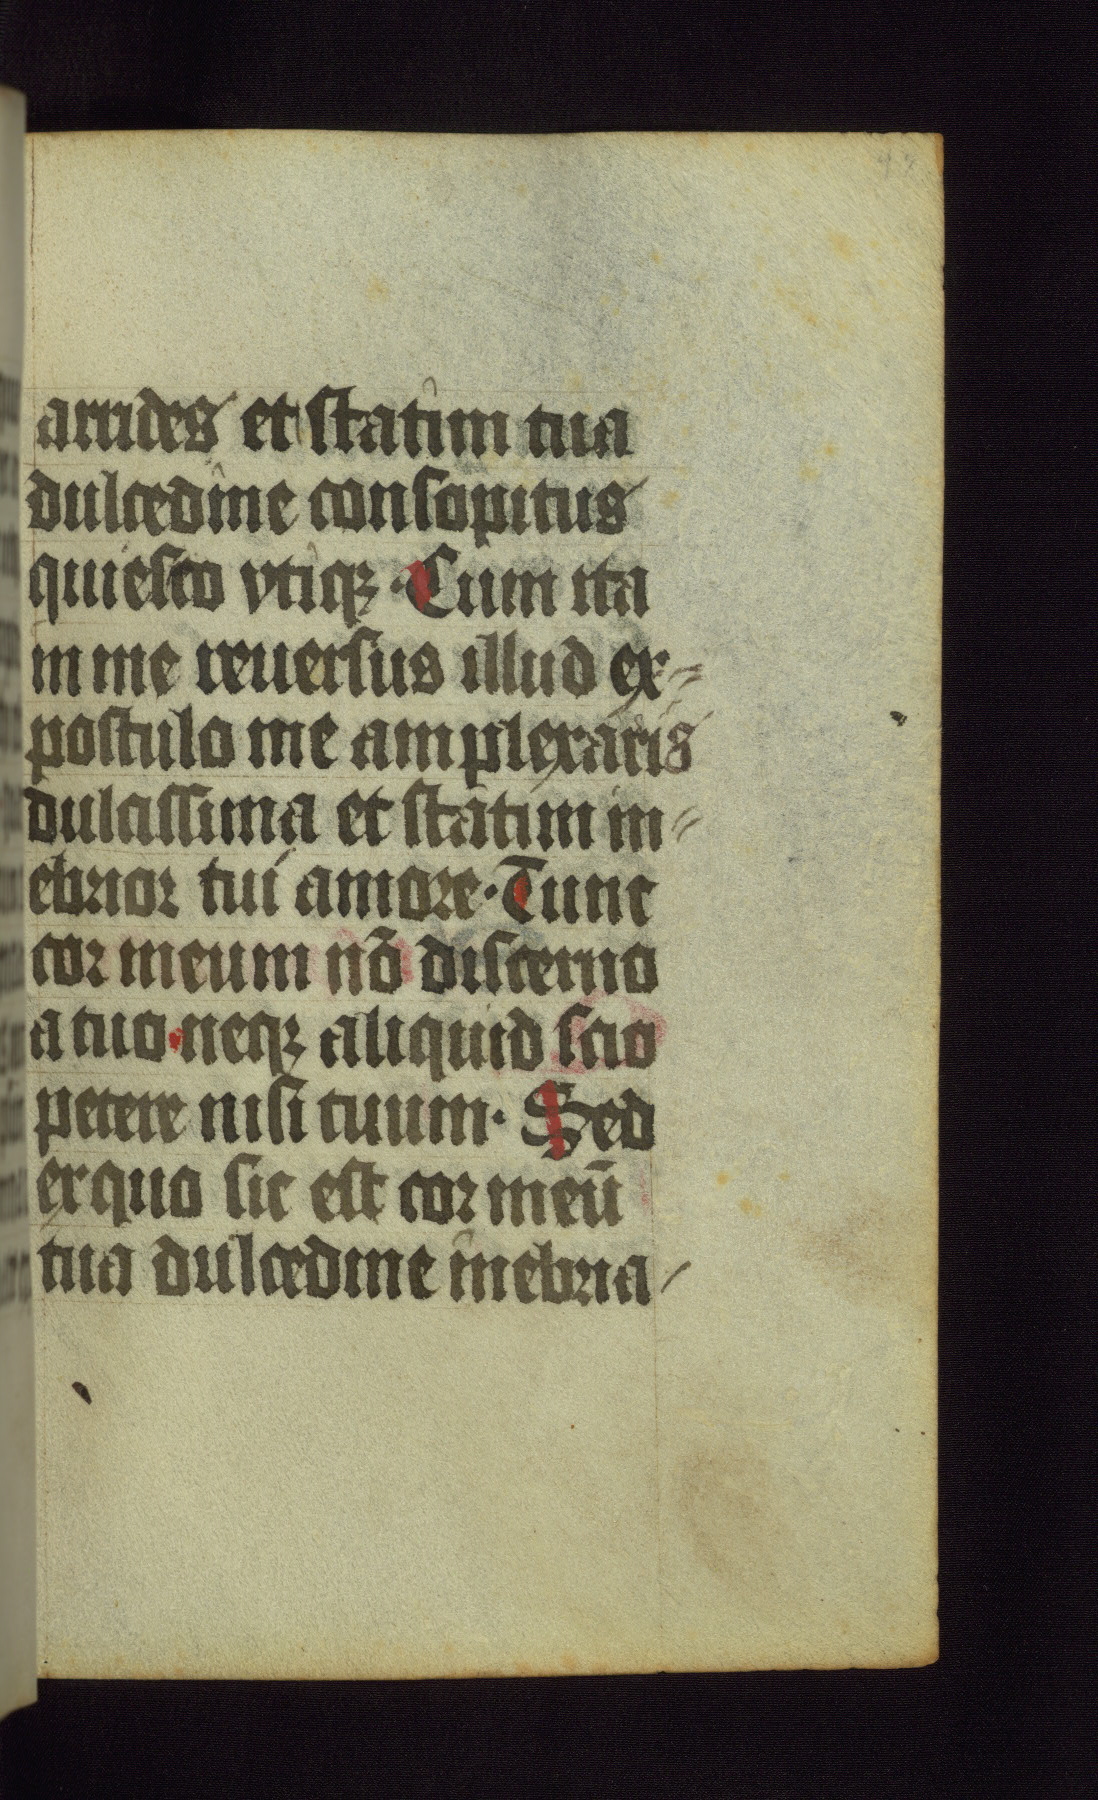 arrides et statim tua
dulcedine consopitus
quiesco vtiqꝫ · Cum ita
in me reuersus illud ex-
postulo me amplexaris
dulcissima et statim in-
ebrior tui amore · Tunc
cor meum nō discerno
a tuo · neqꝫ aliquid scio
petere nisi tuum · Sed
ex quo sic est cor meū
tua dulcedine inebria-